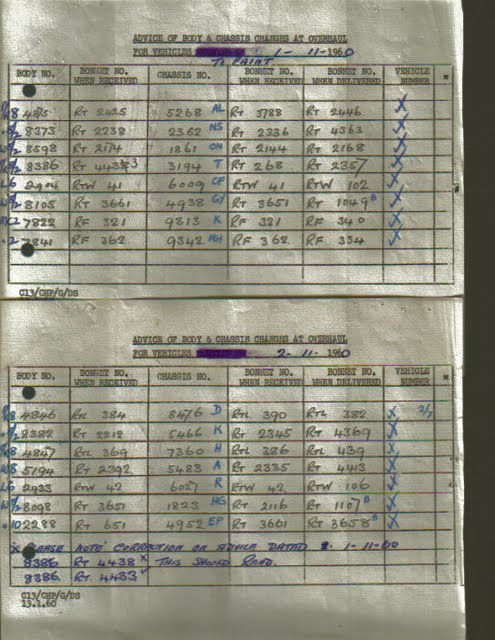 ADVICE OF BODY & CHASSIS CHANGES AT OVERHAUL
FOR VEHICLES 1-11-1960
TO PAINT
BODY NO. BONNET NO. WHEN RECEIVED CHASSIS NO. BONNET NO. WHEN RECEIVED BONNET NO. WHEN DELIVERED VEHICLE NUMBER *
4875 RT 2425 5268 AL RT 3788 RT 2446 X
8373 RT 2238 2362 NS RT 2336 RT 4363 X
8598 RT 2174 1861 ON RT 2144 RT 2168 X
8386 RT 4433 3194 T RT 268 RT 2357 X
L6 2904 RTW 41 6009 CF RTW 41 RTW 102 X
8105 RT 3661 4938 GY RT 3651 RT 1049 B X
7822 RF 321 9313 K RF 321 RF 340 X
7841 RF 362 9342 MH RF 362 RF 334 X
C13/CHP/G/DS
ADVICE OF BODY & CHASSIS CHANGES AT OVERHAUL
FOR VEHICLES 2-11-1960
BODY NO. BONNET NO. WHEN RECEIVED CHASSIS NO. BONNET NO. WHEN RECEIVED BONNET NO. WHEN DELIVERED VEHICLE NUMBER *
4846 RTL 384 8476 D RTL 390 RTL 382 X 2/7
8382 RT 2212 5466 K RT 2345 RT 4369 X
4847 RTL 369 7360 H RTL 386 RTL 439 X
W8 5194 RT 2392 5483 A RT 2335 RT 4413 X
L6 2933 RTW 42 6027 R RTW 42 RTW 106 X
8098 RT 3651 1823 HG RT 2116 RT 1107 B X
10 2288 RT 651 4952 EP RT 3661 RT 3658 B X
X PLEASE NOTE CORRECTION ON ADVICE DATED 1-11-60
8386 RT 4438 X THIS SHOULD READ.
8386. RT. 4433 ✓
C13/CHP/G/DS
13.1.60